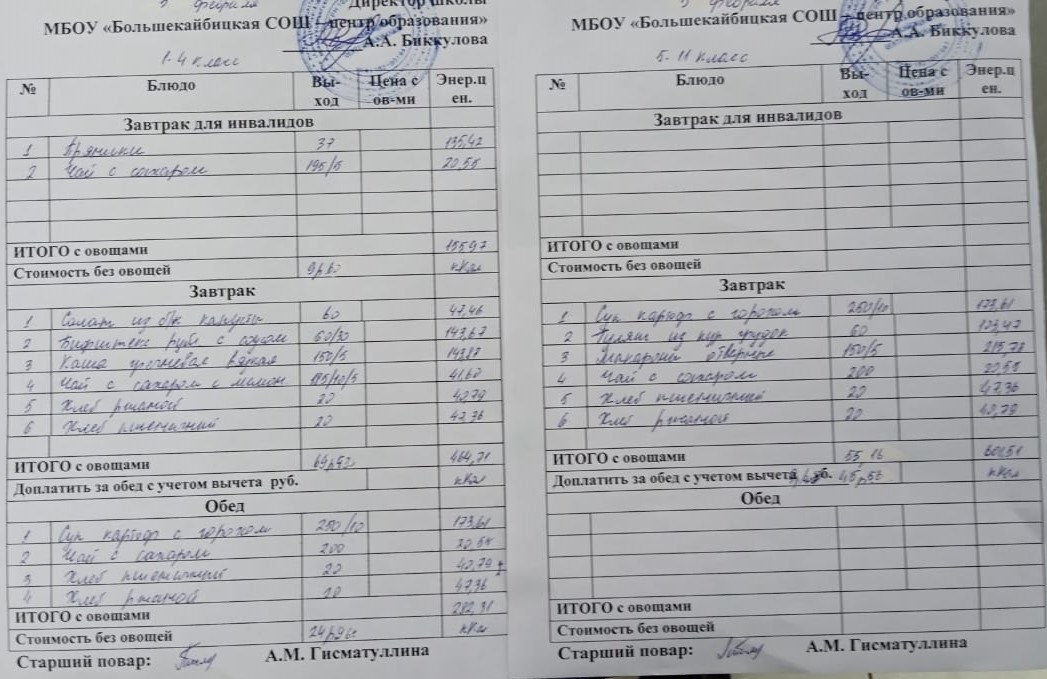 февраля
Директор школы
МБОУ «Большекайбицкая СОШ – центр образования»
А.А. Биккулова
1-4 класс
№ Блюдо Вы-ход Цена с ов-ми Энер.ц ен.
Завтрак для инвалидов
1 Пряники 37 135,42
2 Чай с сахаром 195/5 20,55
ИТОГО с овощами 155,97
Стоимость без овощей кКал
Завтрак
1 Салат из б/к капусты 60 47,46
2 Бифштекс руб с соусом 60/30 143,67
3 Каша гречневая вязкая 150/5
4 Чай с сахаром с лимон 185/10/5 41,60
5 Хлеб ржаной 20 40,79
6 Хлеб пшеничный 20 47,36
ИТОГО с овощами 464,71
Доплатить за обед с учетом вычета руб. кКал
Обед
1 Суп картоф с горохом 250/10 173,61
2 Чай с сахаром 200 20,55
3 Хлеб пшеничный 20 40,79
4 Хлеб ржаной 20 47,36
ИТОГО с овощами 282,31
Стоимость без овощей кКал
Старший повар: А.М. Гисматуллина
февраля
МБОУ «Большекайбицкая СОШ – центр образования»
А.А. Биккулова
5-11 класс
№ Блюдо Вы-ход Цена с ов-ми Энер.ц ен.
Завтрак для инвалидов
ИТОГО с овощами
Стоимость без овощей
Завтрак
1 Суп картоф с горохом 250/10 173,61
2 Гуляш из кур грудок 60
3 Макароны отварные 150/5 215,78
4 Чай с сахаром 200 20,55
5 Хлеб пшеничный 20 47,36
6 Хлеб ржаной 20 40,79
ИТОГО с овощами 55,16
Доплатить за обед с учетом вычета руб. 45р56 кКал
Обед
ИТОГО с овощами
Стоимость без овощей
Старший повар: А.М. Гисматуллина